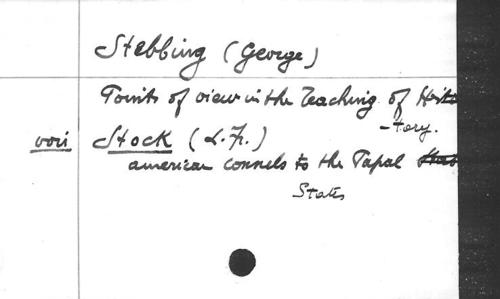 Stebbing (George)
Points of view in the Teaching of His
-tory.
voir Stock (L.Fr.)
american consuls to the Papal
States